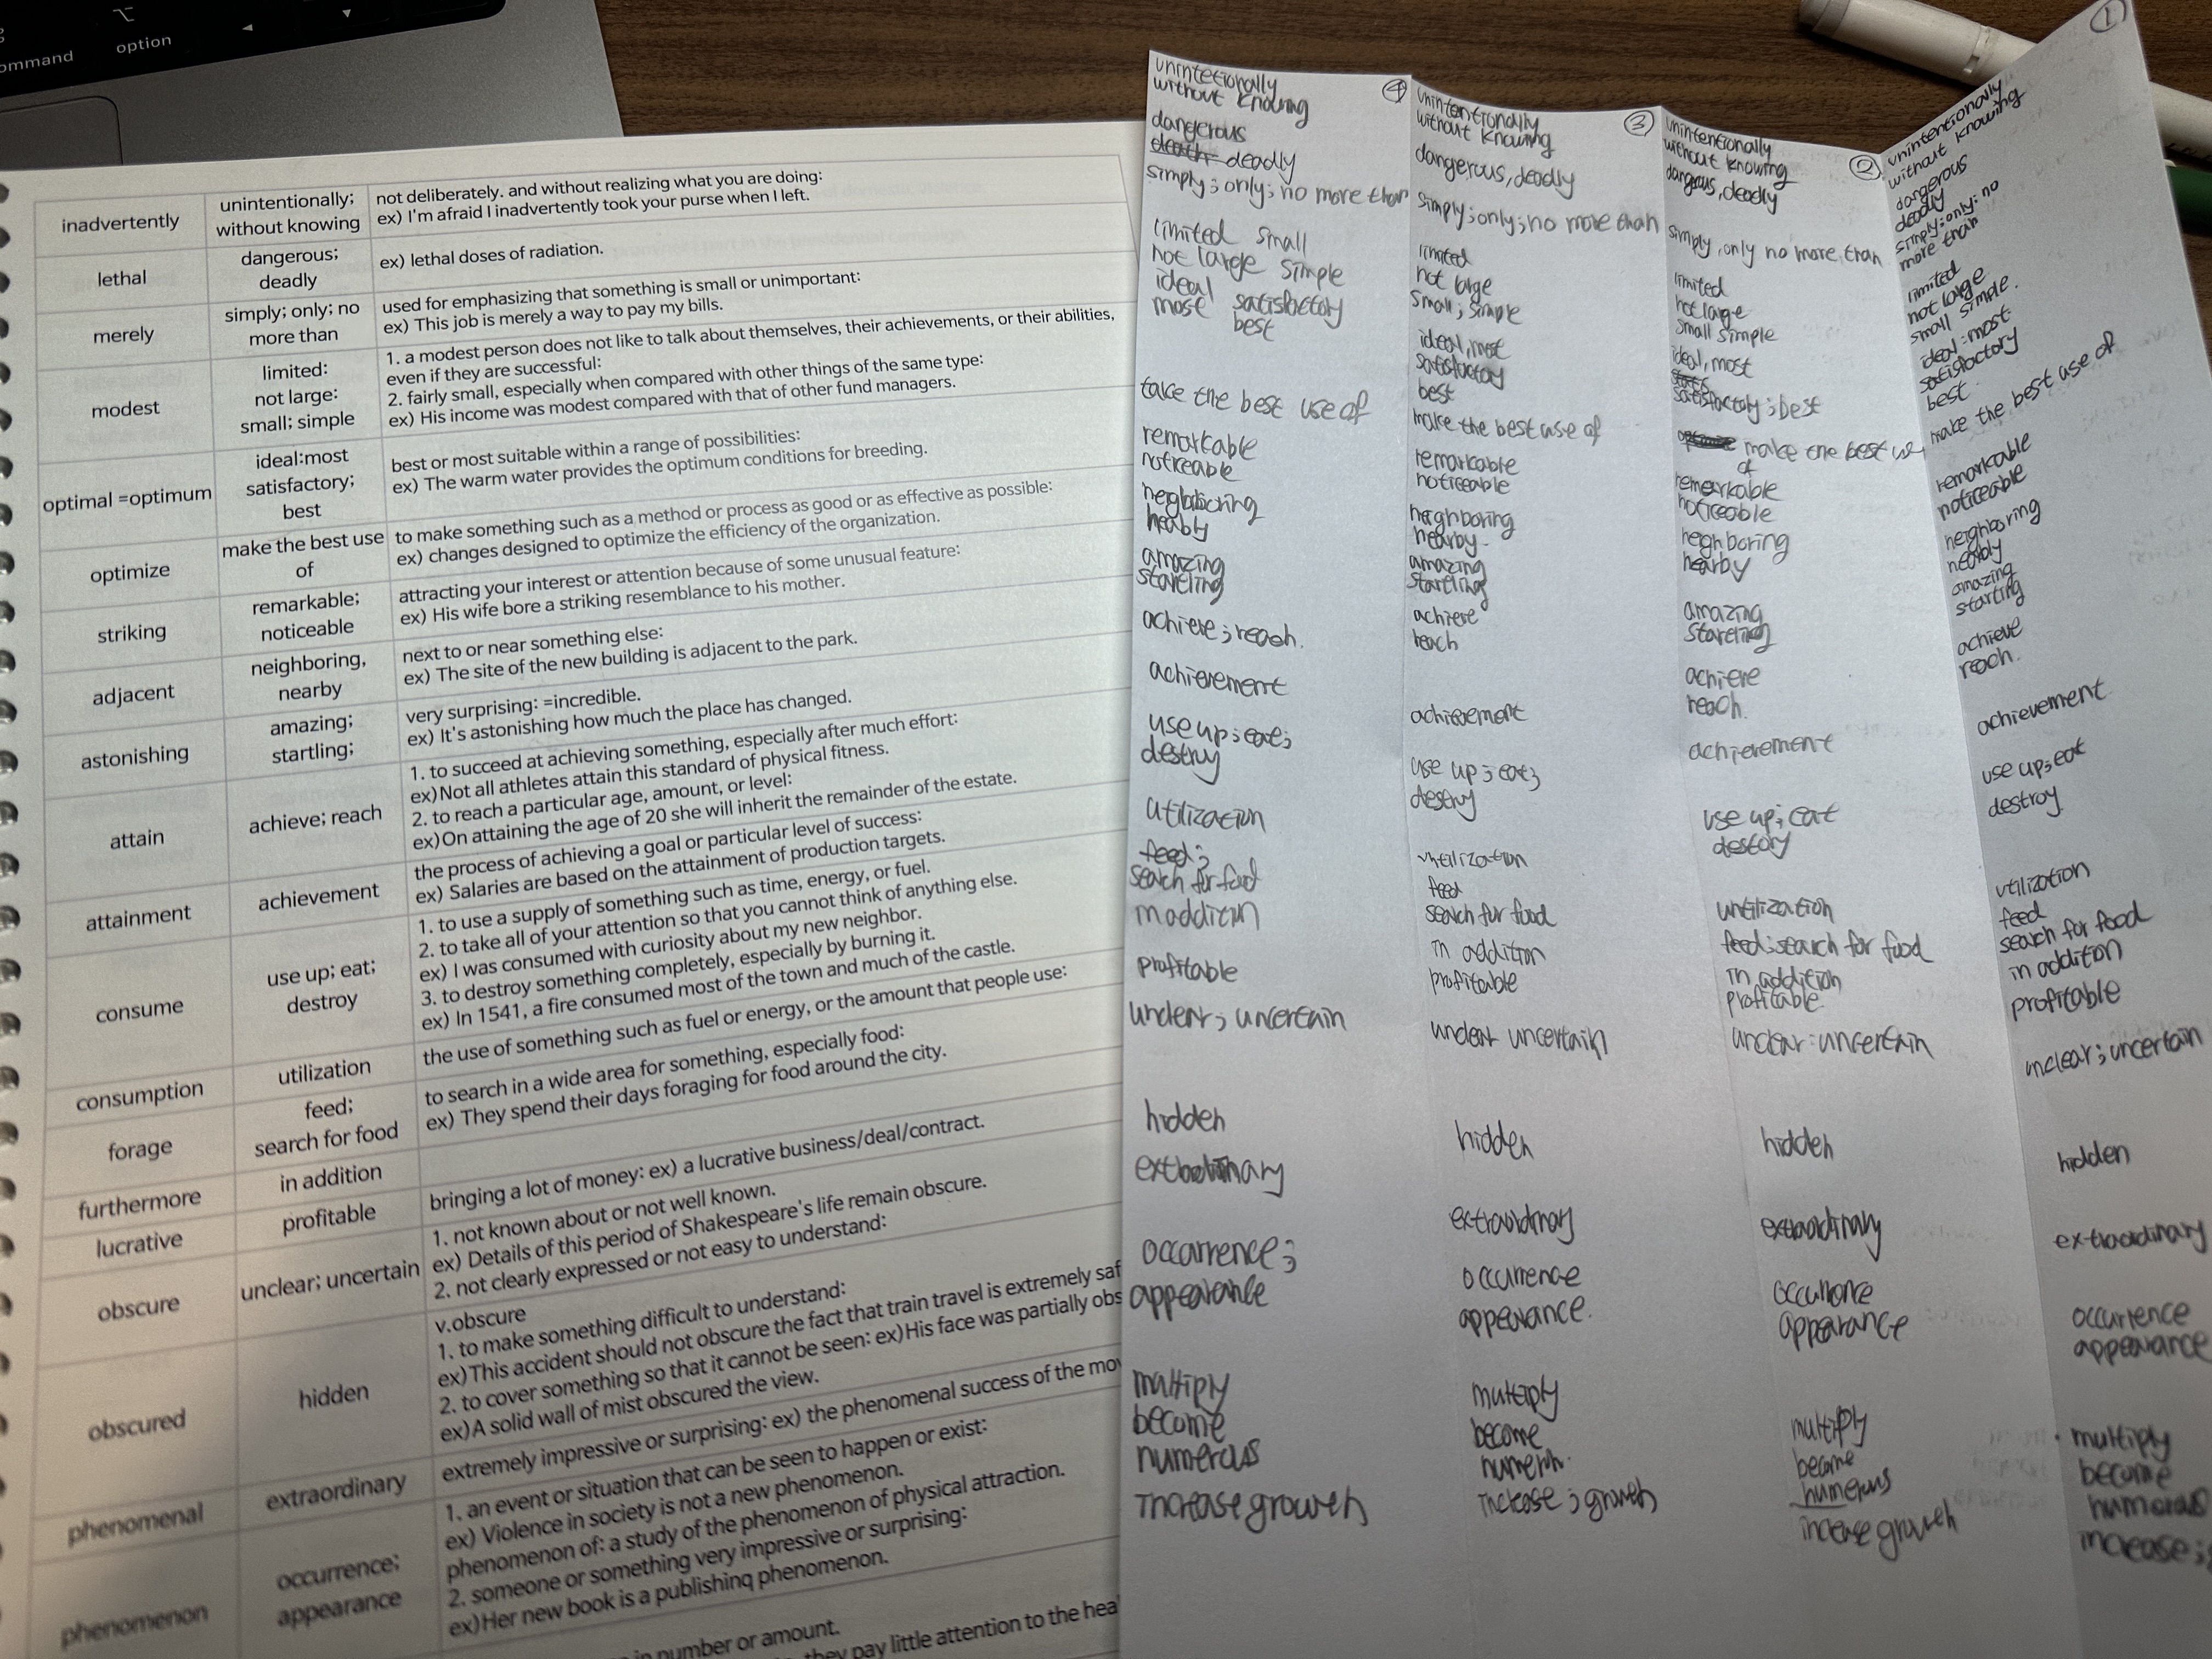 option
inadvertently
unintentionally;
without knowing
not deliberately. and without realizing what you are doing:
ex) I'm afraid I inadvertently took your purse when I left.
lethal
dangerous;
deadly
ex) lethal doses of radiation.
merely
simply; only; no
more than
used for emphasizing that something is small or unimportant:
ex) This job is merely a way to pay my bills.
modest
limited:
not large:
small; simple
1. a modest person does not like to talk about themselves, their achievements, or their abilities,
even if they are successful:
2. fairly small, especially when compared with other things of the same type:
ex) His income was modest compared with that of other fund managers.
optimal =optimum
ideal:most
satisfactory;
best
best or most suitable within a range of possibilities:
ex) The warm water provides the optimum conditions for breeding.
optimize
make the best use
of
to make something such as a method or process as good or as effective as possible:
ex) changes designed to optimize the efficiency of the organization.
striking
remarkable;
noticeable
attracting your interest or attention because of some unusual feature:
ex) His wife bore a striking resemblance to his mother.
adjacent
neighboring,
nearby
next to or near something else:
ex) The site of the new building is adjacent to the park.
astonishing
amazing;
startling;
very surprising: =incredible.
ex) It's astonishing how much the place has changed.
attain
achieve; reach
1. to succeed at achieving something, especially after much effort:
ex)Not all athletes attain this standard of physical fitness.
2. to reach a particular age, amount, or level:
ex)On attaining the age of 20 she will inherit the remainder of the estate.
attainment
achievement
the process of achieving a goal or particular level of success:
ex) Salaries are based on the attainment of production targets.
consume
use up; eat;
destroy
1. to use a supply of something such as time, energy, or fuel.
2. to take all of your attention so that you cannot think of anything else.
ex) I was consumed with curiosity about my new neighbor.
3. to destroy something completely, especially by burning it.
ex) In 1541, a fire consumed most of the town and much of the castle.
consumption
utilization
the use of something such as fuel or energy, or the amount that people use:
forage
feed;
search for food
to search in a wide area for something, especially food:
ex) They spend their days foraging for food around the city.
furthermore
in addition
lucrative
profitable
bringing a lot of money: ex) a lucrative business/deal/contract.
obscure
unclear; uncertain
1. not known about or not well known.
ex) Details of this period of Shakespeare's life remain obscure.
2. not clearly expressed or not easy to understand:
obscured
hidden
v.obscure
1. to make something difficult to understand:
ex)This accident should not obscure the fact that train travel is extremely saf
2. to cover something so that it cannot be seen: ex)His face was partially obs
ex)A solid wall of mist obscured the view.
phenomenal
extraordinary
extremely impressive or surprising: ex) the phenomenal success of the mo
phenomenon
occurrence;
appearance
1. an event or situation that can be seen to happen or exist:
ex) Violence in society is not a new phenomenon.
phenomenon of: a study of the phenomenon of physical attraction.
2. someone or something very impressive or surprising:
ex)Her new book is a publishing phenomenon.
in number or amount.
they pay little attention to the hea
④
unintetionally
without knowing
dangerous
deadly
simply; only; no more than
limited small
not large simple
ideal
most satisfactory
best
take the best use of
remarkable
noticeable
neighboring
neably
amazing
startling
achieve; reach.
achievement
use up; eat;
destruy
utilization
feed;
search for food
in addition
profitable
unclear; uncertain
hidden
occurrence;
appearance
multiply
become
numerous
increase growth
③
unintentionally
without knowing
dangerous, deadly
simply; only; no more than
limited
not large
small; simple
ideal, most
satisfactory
best
make the best use of
remarkable
noticeable
neighboring
nearby
amazing
startling
achieve
reach
achievement
use up; eat;
destroy
feed
search for food
in addition
profitable
unclear uncertain
hidden
occurrence
appearance.
multiply
become
increase; growth
②
unintentionally
without knowing
dangerous, deadly
simply, only no more than
limited
not large
small simple
ideal, most
satisfactory; best
make the best use
of
remarkable
noticeable
neighboring
nearby
amazing
startling
achieve
reach.
achievement
use up; eat
destory
untilization
feed; search for food
in addition
profitable.
unclear: uncertain
hidden
extraordinary
appearance
multiply
become
numerous
increase growth
①
unintentionally
without knowing
dangerous
deadly
simply; only; no
more than
limited
not large
small simple.
ideal: most
satisfactory
best.
make the best use of
remarkable
noticeable
neighboring
nearby
amazing
starting
achieve
reach.
achievement
use up; eat
destroy
utilization
feed
search for food
in addition
profitable
unclear; uncertain
hidden
extraordinary
occurrence
appearance
multiply
become
increase;